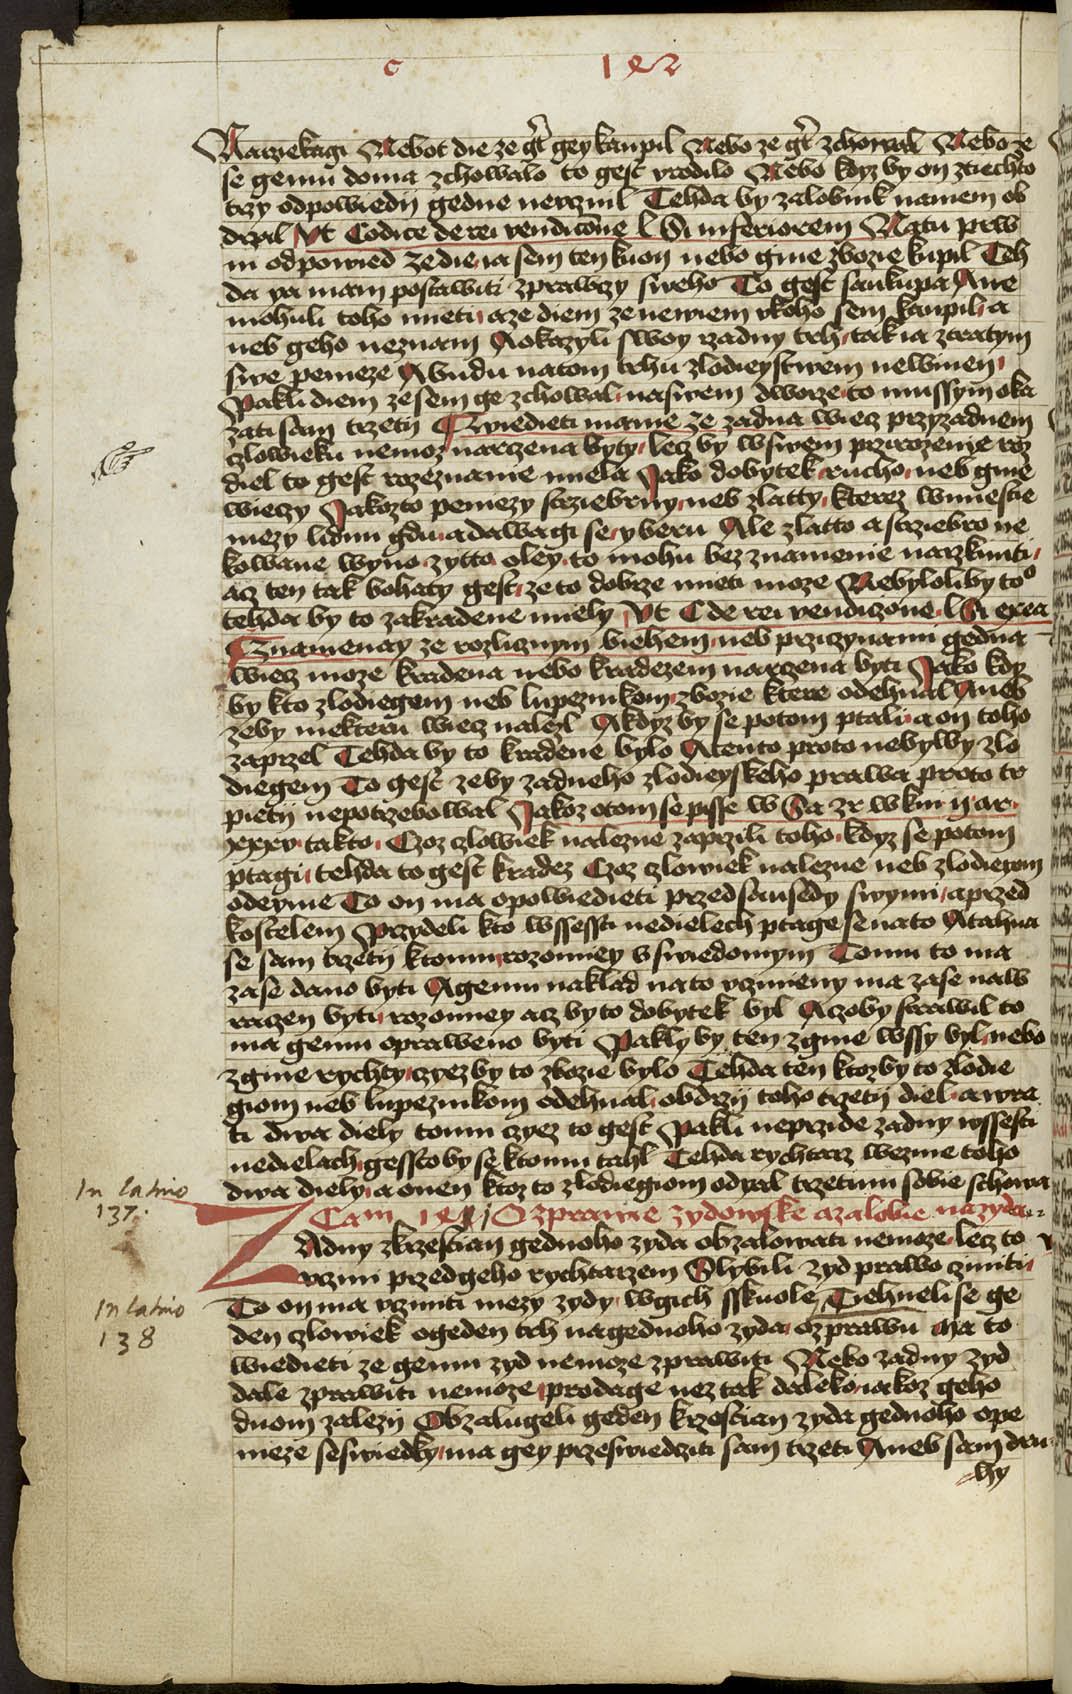 c 1 2
Narziekagi Nebot die ze gt gey kaupil Nebo ze gt zchowal Nebo ze
se gemu doma zchowalo to gest vrodilo Nebo kdyz by on ztiechto
trzy odpowiedij gedne nevczinil Tehda by zalobnik namem ob
drzal Vt Codice de rei vendicõne l Si inferiorem Natu prw
ni odpowied ze die ia sem ten kuon nebo gine zbozie kupil Teh
da ya mam postawiti zprawczy sweho To gest saukupa A ne
mohuli toho mieti aze diem ze newiem v koho sem kaupil a
neb geho neznam A okazyli swoy rzadny trh tak ia ztratym
swe penieze A budu natom trhu zlodieystwem newinen
Pakli diem ze sem ge zchowal naswem dworze to mussym oka
zati sam trzetij Zwiedieti mame ze zadna wiecz przyzadnem
czlowieku nemoz narczena byty lecz by wswem przirozenie roz
diel to gest rozeznanie miela Jako dobytek rucho neb gine
wieczy Jakozto peniezy strziebrny neb zlatty kterez wmiestie
mezy lidmi gdu a dawagi se y beru Ale zlatto a strziebro ne
kowane wyno zytto oley to mohu bez znamenie narzknuti
acz ten tak bohaty gest ze to dobrze mieti moze Nebyloliby to°
tehda by to zakradene miely Vt C de rei vendiczone l Si exea
Znamenay ze rozlicznym biehem neb prziczynami gedna
wiecz moze kradena nebo kradezem narczena byti Jako kdy
by kto zlodiegem neb lupeznikom zbozie ktere odehnal Aneb
zeby niekteru wiecz nalezl A kdyz by se potom ptali a on toho
zaprzel Tehda by to kradene bylo A tento proto nebylby zlo
diegem To gest zeby zadneho zlodieyskeho prawa proto tr
pietij nepotrzebowal Jakoz otom se pisse w Sa zr w kni ij ar
xxxv takto Czoz czlowiek nalezne zaprzili toho kdyz se potom
ptagi tehda to gest kradez Czoz czlowiek nalezne neb zlodiegom
odeyme To on ma opowiedieti przed sausedy swymi a przed
kostelem Przydeli kto wssessti nedielech ptage se nato A tahna
se sam trzetij ktomu rozomiey vswiedomym Tomu to ma
zase dano byti A gemu naklad nato vczinieny ma zase naw
raczen byti rozomiey acz by to dobytek byl A czoby strawil to
ma gemu opraweno byti Pakly by ten zgine wssy byl nebo
zgine rychty czyez by to zbozie bylo Tehda ten ktozby to zlodie
giom neb lupeznikom odehnal obdrzij toho trzetij diel a wra
ti dwa diely tomu czyez to gest Pakli neprzide zadny wssesti
nedielach gesstoby se ktomu tahl Tehda rychtarz wezme toho
dwa diely a onen ktoz to zlodiegiom odyal trzetinu sobie schowa
In latino
137.
Cam O zprawie zydowske a zalobie nazyda
ZAdny zkrzestian gednoho zyda obzalowati nemoze lecz to
vczini przed geho rychtarzem Slybili zyd prawo cziniti
In latino
138
To on ma vcziniti mezy zydy wgich sskuole Tiehneli se ge
den czlowiek ogeden trh nagednoho zyda ozprawu Ma to
wiedieti ze gemu zyd nemoze zprawiti Nebo zadny zyd
dale zprawiti nemoze prodage nez tak daleko iakoz geho
duom zalezij Obzalugeli geden krzestian zyda gednoho ope
nieze seswiedky ma gey przeswiedcziti sam trzeti Aneb sam dru
hy